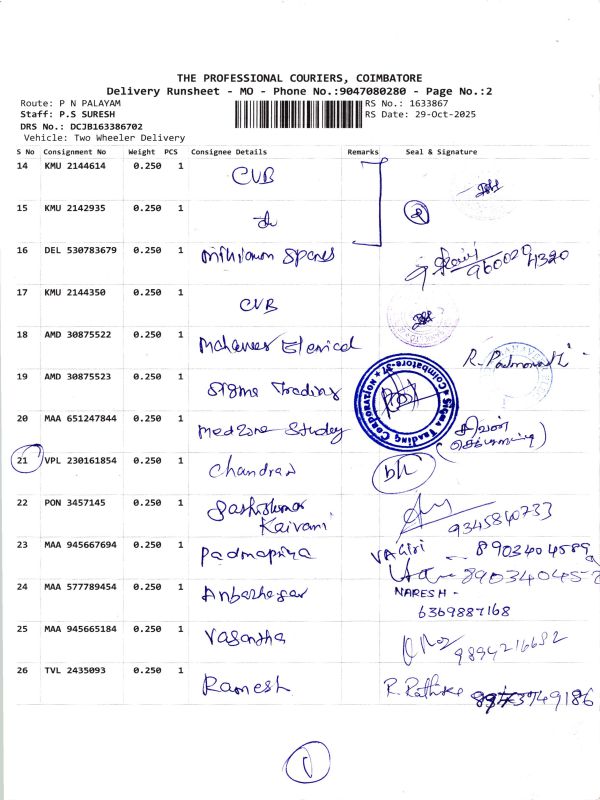 THE PROFESSIONAL COURIERS, COIMBATORE
Delivery Runsheet - MO - Phone No.:9047080280 - Page No.:2
Route: P N PALAYAM RS No.: 1633867
Staff: P.S SURESH RS Date: 29-Oct-2025
DRS No.: DCJB163386702
Vehicle: Two Wheeler Delivery
S No Consignment No Weight PCS Consignee Details Remarks Seal & Signature
14 KMU 2144614 0.250 1 CUB
15 KMU 2142935 0.250 1
16 DEL 530783679 0.250 1 Spares
17 KMU 2144350 0.250 1 CUB
18 AMD 30875522 0.250 1 R. Padmavathi
19 AMD 30875523 0.250 1 Sigma Trading
Sigma Trading Corporation
Coimbatore-37
20 MAA 651247844 0.250 1 Medzone Study
21 VPL 230161854 0.250 1 Chandran
22 PON 3457145 0.250 1 Sashikumar
Kaivani 9345840733
23 MAA 945667694 0.250 1 Padmapriya VAGiri - 8903404589
24 MAA 577789454 0.250 1 Anbazhagar NARESH -
6369887168
25 MAA 945665184 0.250 1 Vasantha 9894216652
26 TVL 2435093 0.250 1 Ramesh R. Rathika